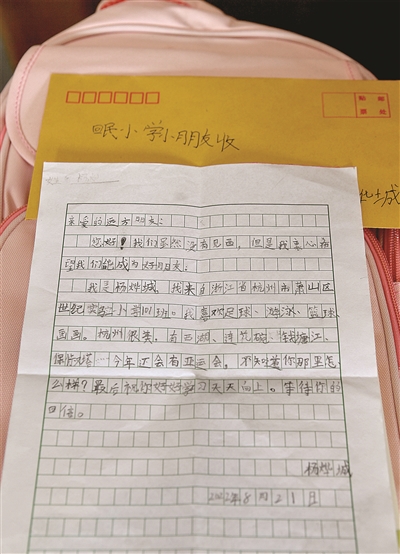 小学小朋友收
贴邮
票处
城
亲爱的远方朋友：
您好！我们虽然没有见面，但是我衷心希
望我们能成为好朋友：
我是杨烨城，我来自浙江省杭州市萧山区
世纪实验小学201班。我喜欢足球、游泳、篮球、
画画。杭州很美，有西湖、钱塘江、
保俶塔……今年还会有亚运会，不知道你那里怎
么样？最后祝你好好学习天天向上。等待你的
回信。
杨烨城
2022年8月21日